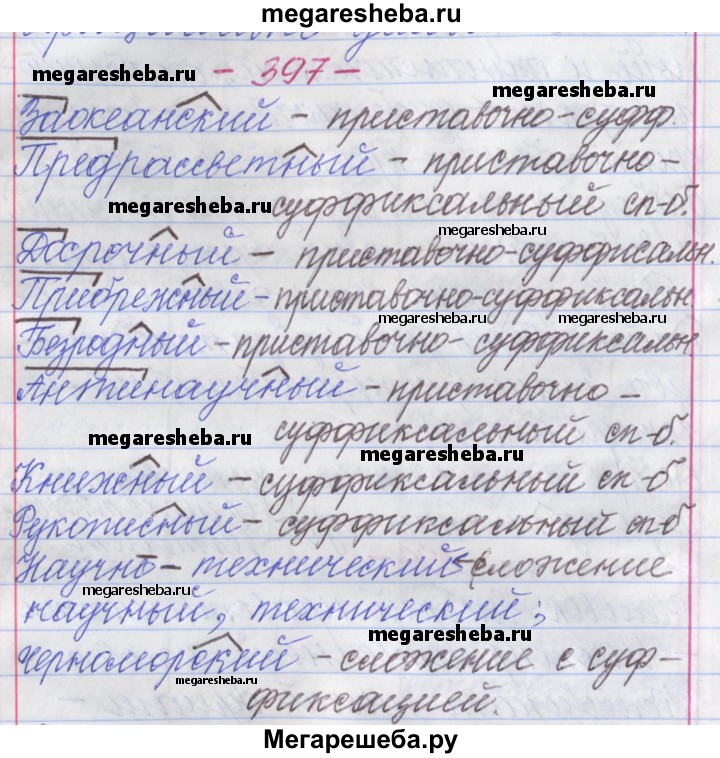 megaresheba.ru
megaresheba.ru - 397 -
megaresheba.ru
Заокеанский - приставочно-суфф.
Предрассветный - приставочно-
megaresheba.ru суффиксальный сп-б.
megaresheba.ru
Досрочный - приставочно-суффисальн.
Прибрежный - приставочно-суффиксальн.
megaresheba.ru megaresheba.ru
Безродный - приставочно-суффиксальн.
Антинаучный - приставочно -
megaresheba.ru суффиксальный сп-б.
megaresheba.ru
Книжный - суффиксальный сп-б
Рукописный - суффиксальный сп-б
Научно - технический - сложение
megaresheba.ru
научный, технический;
megaresheba.ru
Черноморский - сложение с суф-
megaresheba.ru
фиксацией.
Мегарешеба.ру